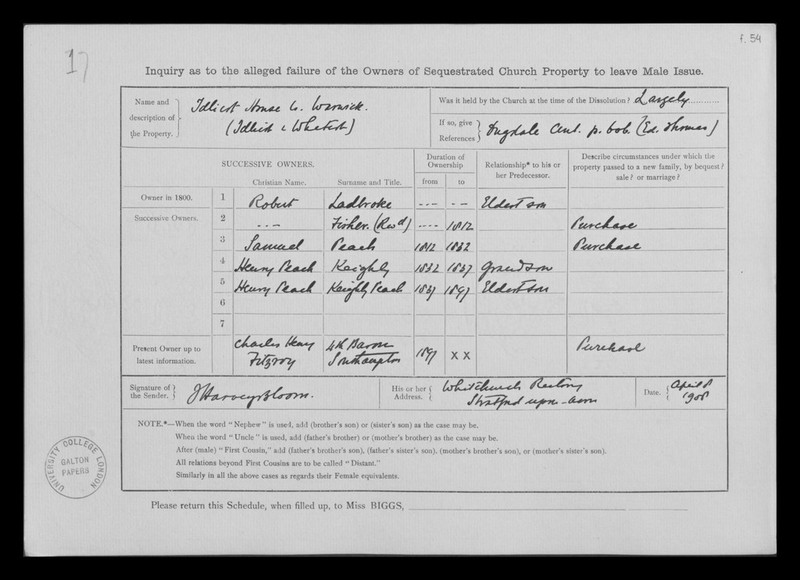 f. 54
17
Inquiry as to the alleged failure of the Owners of Sequestrated Church Property to leave Male Issue.
Name and description of the Property. Idlicot House Co. Warwick.
(Idlicot & Whatcot)
Was it held by the Church at the time of the Dissolution? Largely
If so, give References Dugdale Ant. p. 606. (Ed. Thomas)
SUCCESSIVE OWNERS.
Christian Name. Surname and Title.
Duration of Ownership
from to
Relationship* to his or her Predecessor.
Describe circumstances under which the property passed to a new family, by bequest? sale? or marriage?
Owner in 1800. 1 Robert Ladbroke --- -- Eldest son
Successive Owners. 2 --- Fisher. (Revd) ---- 1812 Purchase
3 Samuel Peach 1812 1832 Purchase
4 Henry Peach Keighly 1832 1837 Grandson
5 Henry Peach Keighly Peach 1837 1897 Eldest son
6
7
Present Owner up to latest information. Charles Henry Fitzroy 4th Baron Southampton 1897 x x Purchase
Signature of the Sender. J Harvey Bloom.
His or her Address. Whitchurch Rectory
Stratford upon-avon
Date. April 8
1908
NOTE.*—When the word "Nephew" is used, add (brother's son) or (sister's son) as the case may be.
When the word "Uncle" is used, add (father's brother) or (mother's brother) as the case may be.
After (male) "First Cousin," add (father's brother's son), (father's sister's son), (mother's brother's son), or (mother's sister's son).
All relations beyond First Cousins are to be called "Distant."
Similarly in all the above cases as regards their Female equivalents.
UNIVERSITY COLLEGE LONDON
GALTON
PAPERS
Please return this Schedule, when filled up, to Miss BIGGS,